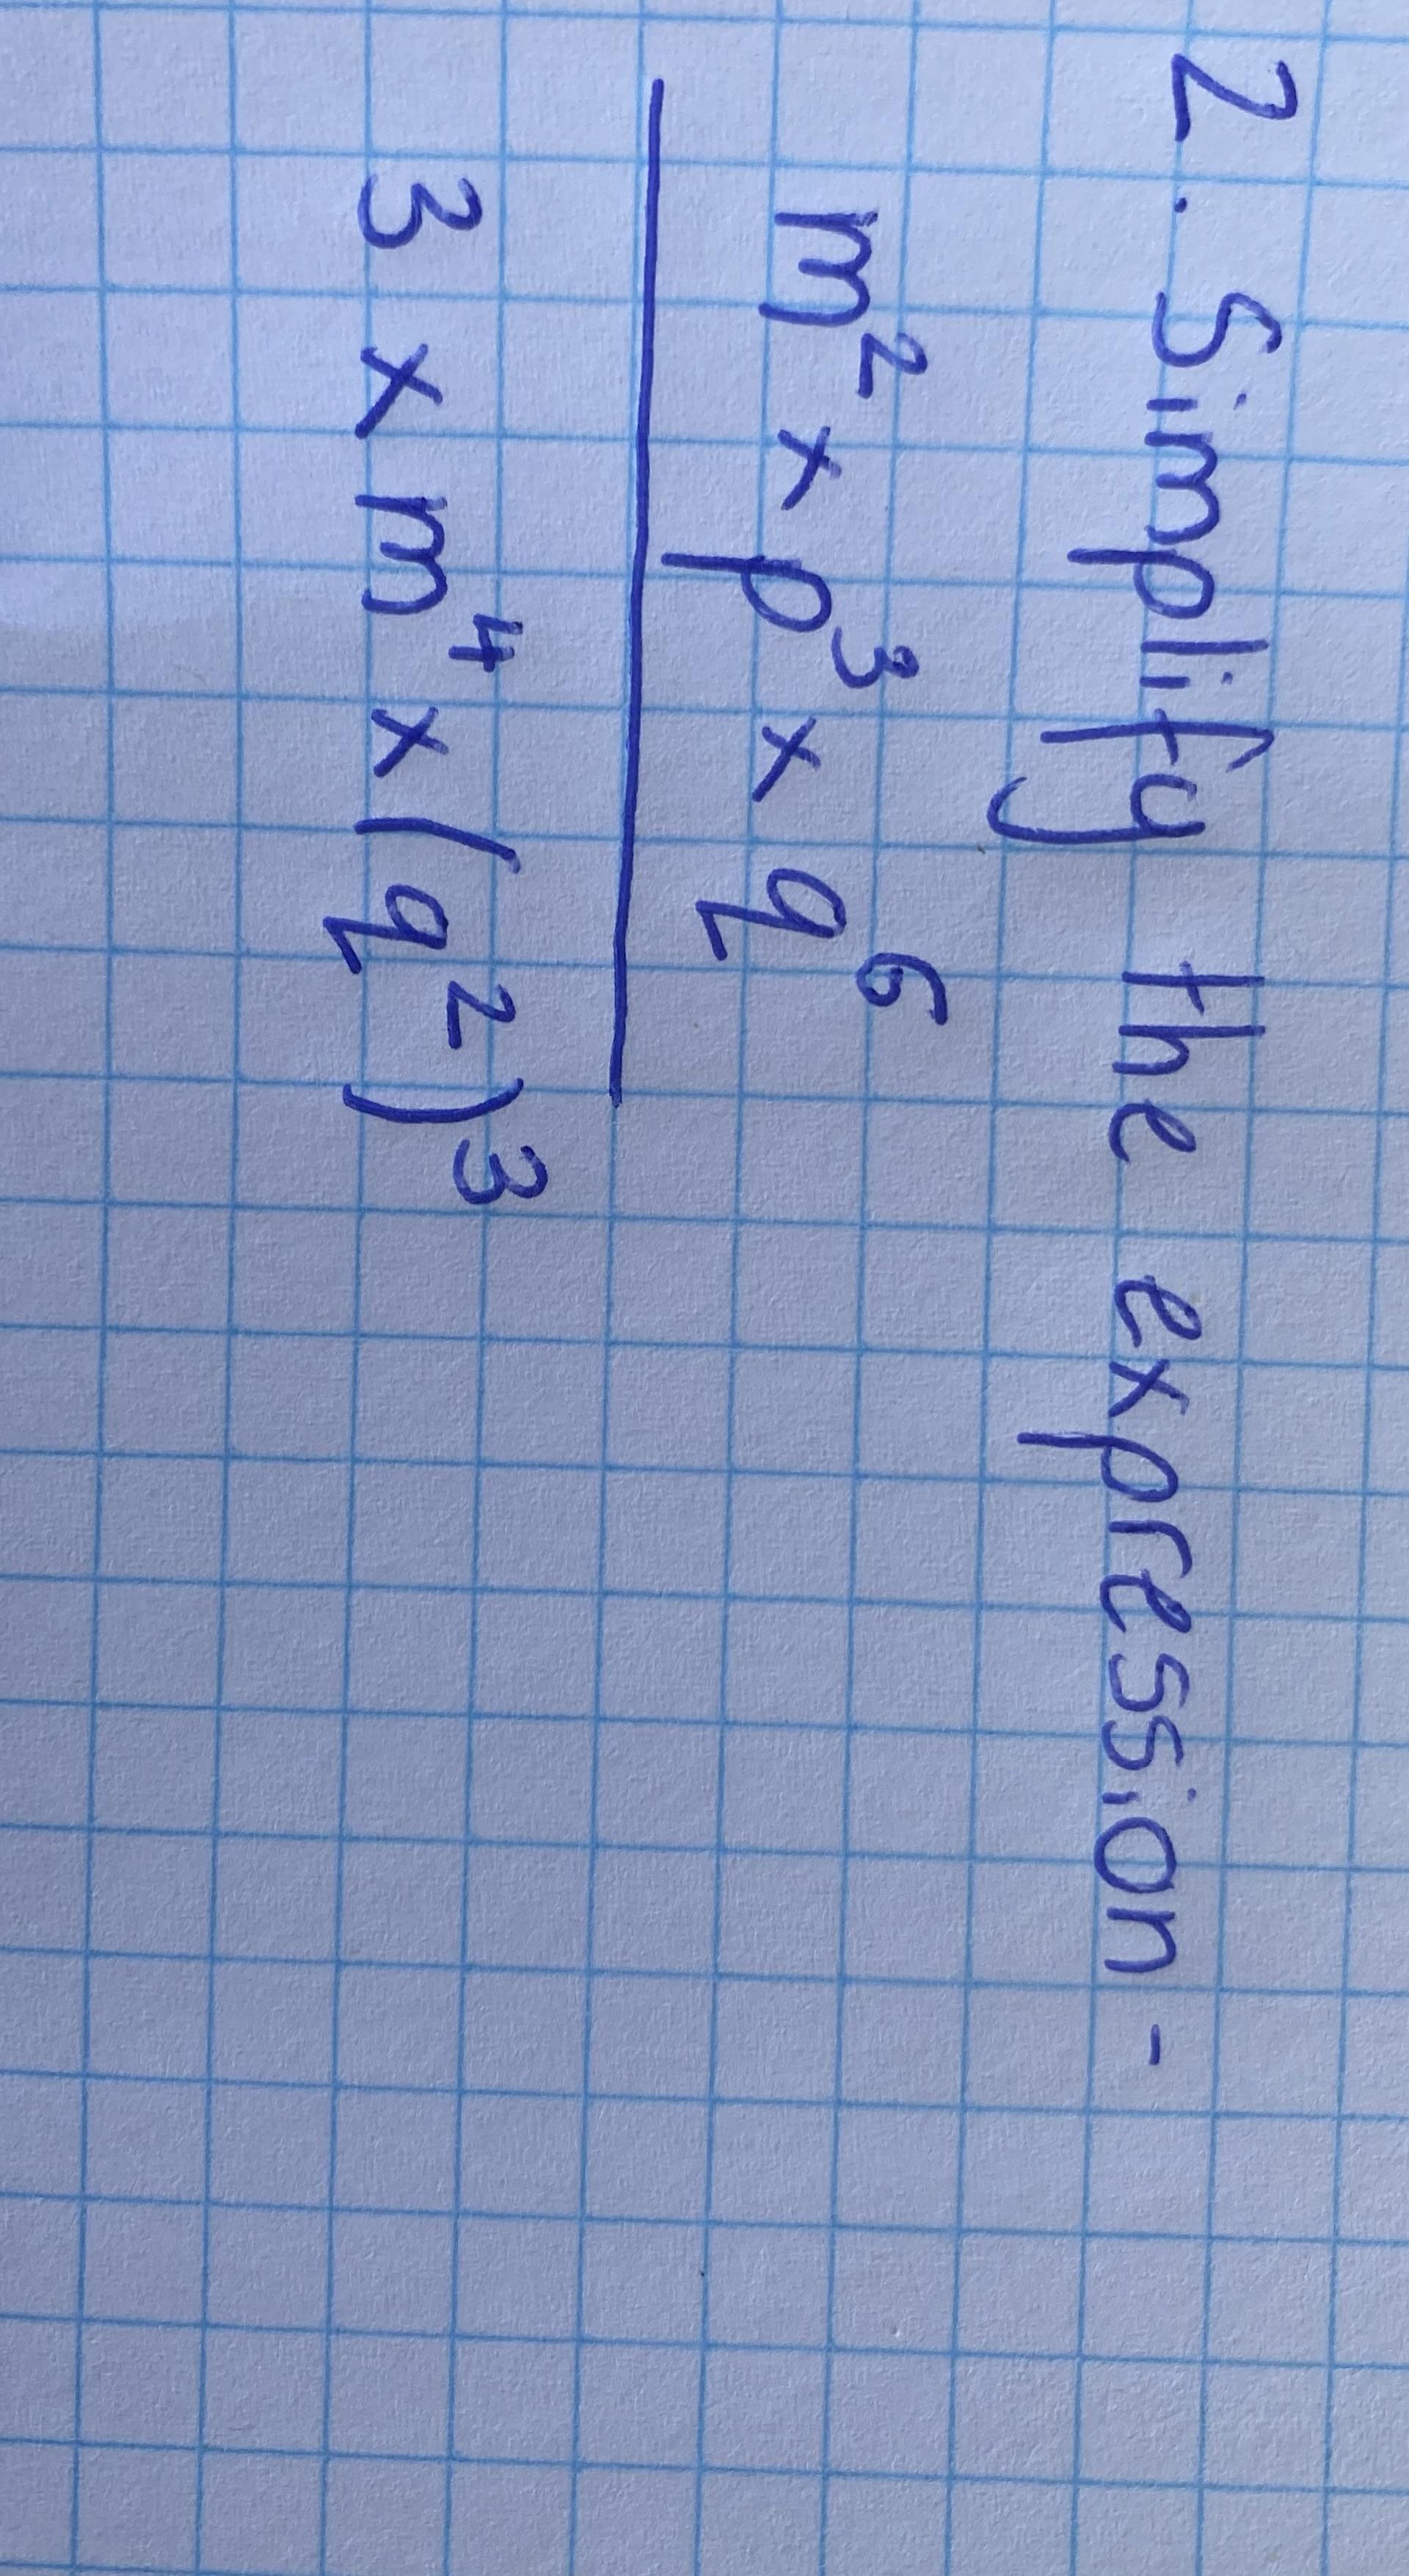 2. Simplify the expression -
m² x p³ x q⁶
3 x m⁴ x (q²)³